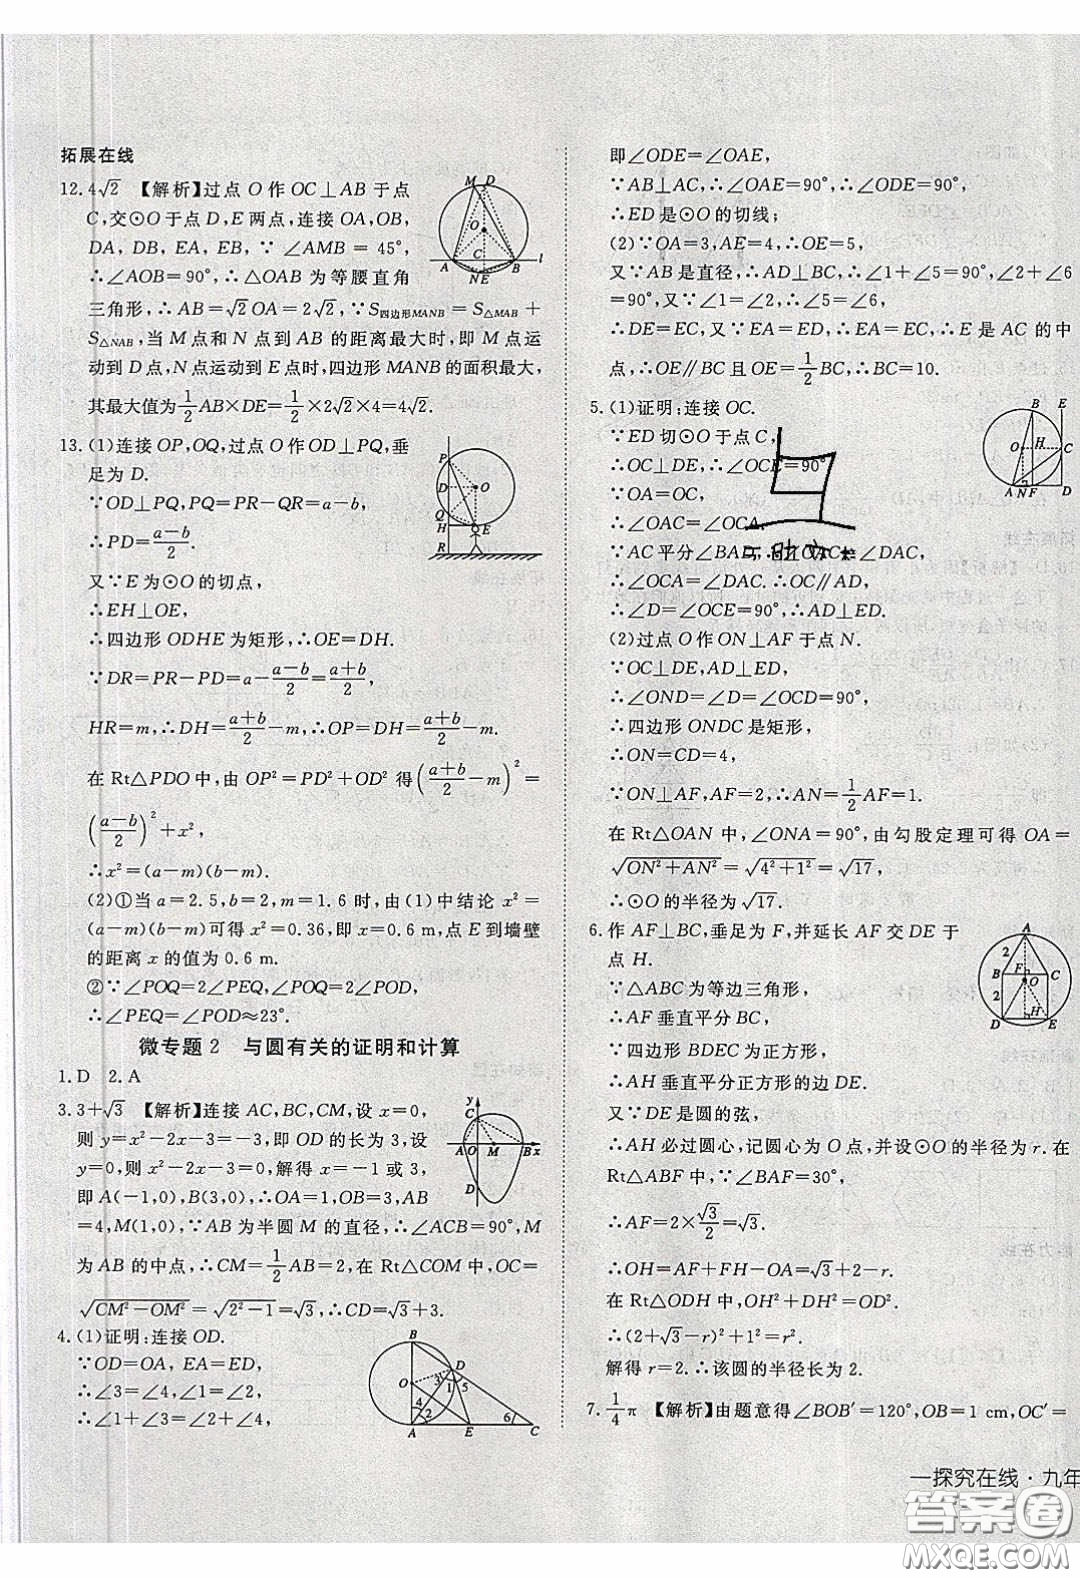 拓展在线
12. 4√2 【解析】过点 O 作 OC⊥AB 于点
C,交⊙O 于点 D,E 两点,连接 OA,OB,
DA, DB, EA, EB, ∵ ∠AMB = 45°,
∴∠AOB=90°,∴△OAB 为等腰直角
三角形,∴AB=√2OA=2√2,∵S四边形MANB=S△MAB+
S△NAB,当 M 点和 N 点到 AB 的距离最大时,即 M 点运
动到 D 点,N 点运动到 E 点时,四边形 MANB 的面积最大,
其最大值为1/2AB×DE=1/2×2√2×4=4√2.
13. (1)连接 OP,OQ,过点 O 作 OD⊥PQ,垂
足为 D.
∵OD⊥PQ,PQ=PR-QR=a-b,
∴PD=(a-b)/2.
又∵E 为⊙O 的切点,
∴EH⊥OE,
∴四边形 ODHE 为矩形,∴OE=DH.
∵DR=PR-PD=a-(a-b)/2=(a+b)/2,
HR=m,∴DH=(a+b)/2-m,∴OP=DH=(a+b)/2-m.
在 Rt△PDO 中,由 OP²=PD²+OD² 得((a+b)/2-m)²=
((a-b)/2)²+x²,
∴x²=(a-m)(b-m).
(2)①当 a=2.5,b=2,m=1.6 时,由(1)中结论 x²=
(a-m)(b-m)可得 x²=0.36,即 x=0.6 m,点 E 到墙壁
的距离 x 的值为 0.6 m.
②∵∠POQ=2∠PEQ,∠POQ=2∠POD,
∴∠PEQ=∠POD≈23°.
微专题 2 与圆有关的证明和计算
1. D 2. A
3. 3+√3 【解析】连接 AC,BC,CM,设 x=0,
则 y=x²-2x-3=-3,即 OD 的长为 3,设
y=0,则 x²-2x-3=0,解得 x=-1 或 3,
即 A(-1,0),B(3,0),∴OA=1,OB=3,AB
=4,M(1,0),∵AB 为半圆 M 的直径,∴∠ACB=90°,M
为 AB 的中点,∴CM=1/2AB=2,在 Rt△COM 中,OC=
√(CM²-OM²)=√(2²-1)=√3,∴CD=√3+3.
4. (1)证明:连接 OD.
∵OD=OA, EA=ED,
∴∠3=∠4,∠1=∠2,
∴∠1+∠3=∠2+∠4,
即∠ODE=∠OAE,
∵AB⊥AC,∴∠OAE=90°,∴∠ODE=90°,
∴ED 是⊙O 的切线;
(2)∵OA=3,AE=4,∴OE=5,
又∵AB 是直径,∴AD⊥BC,∴∠1+∠5=90°,∠2+∠6
=90°,又∵∠1=∠2,∴∠5=∠6,
∴DE=EC,又∵EA=ED,∴AE=EC,∴E 是 AC 的中
点,∴OE∥BC 且 OE=1/2BC,∴BC=10.
5. (1)证明:连接 OC.
∵ED 切⊙O 于点 C,
∴OC⊥DE,∴∠OCE=90°
∵OA=OC,
∴∠OAC=∠OCA.
∵AC 平分∠BAD,∴∠OAC=∠DAC,
∴∠OCA=∠DAC. ∴OC∥AD,
∴∠D=∠OCE=90°,∴AD⊥ED.
(2)过点 O 作 ON⊥AF 于点 N.
∵OC⊥DE,AD⊥ED,
∴∠OND=∠D=∠OCD=90°,
∴四边形 ONDC 是矩形,
∴ON=CD=4,
∵ON⊥AF,AF=2,∴AN=1/2AF=1.
在 Rt△OAN 中,∠ONA=90°,由勾股定理可得 OA=
√(ON²+AN²)=√(4²+1²)=√17,
∴⊙O 的半径为√17.
6. 作 AF⊥BC,垂足为 F,并延长 AF 交 DE 于
点 H.
∵△ABC 为等边三角形,
∴AF 垂直平分 BC,
∵四边形 BDEC 为正方形,
∴AH 垂直平分正方形的边 DE.
又∵DE 是圆的弦,
∴AH 必过圆心,记圆心为 O 点,并设⊙O 的半径为 r. 在
Rt△ABF 中,∵∠BAF=30°,
∴AF=2×√3/2=√3.
∴OH=AF+FH-OA=√3+2-r.
在 Rt△ODH 中,OH²+DH²=OD².
∴(2+√3-r)²+1²=r².
解得 r=2. ∴该圆的半径长为 2.
7. 1/4π 【解析】由题意得∠BOB′=120°,OB=1 cm,OC′=
一探究在线·九年
答案圈
MXQE.COM